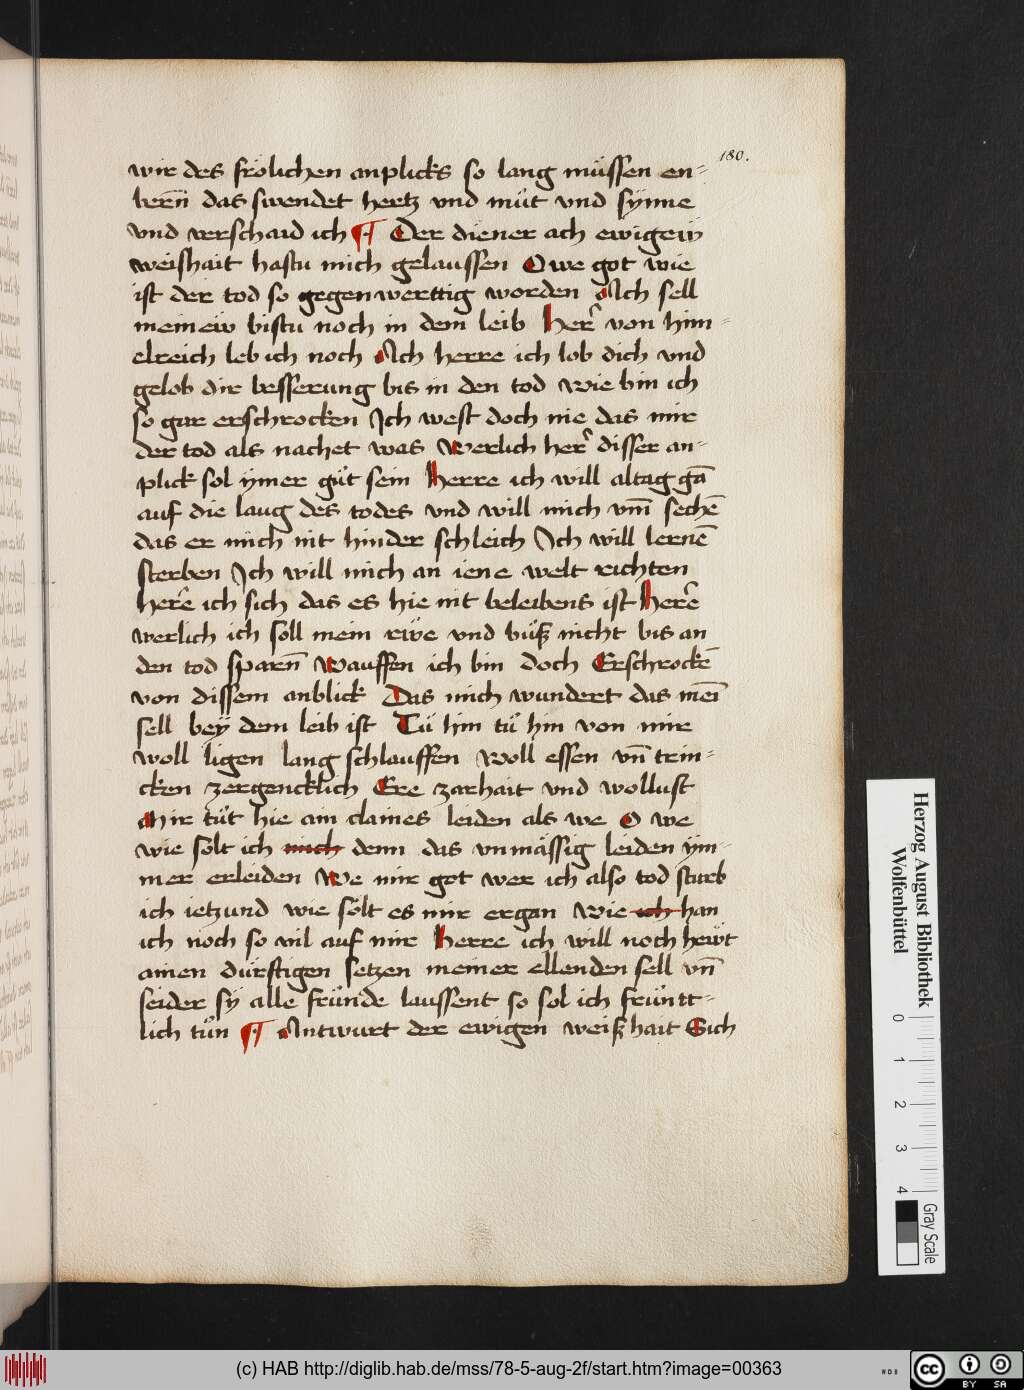 180.
wir des frölichen anplicks so lang müssen en-
bern̄ das swendet hertz vnd müt vnd synne
vnd verschaid ich ¶ Der diener ach ewigew
weishait hastu mich gelaussen O we got wie
ist der tod so gegenwerttig worden Ach sell
meinew bistu noch in dem leib Her̄ von him-
elreich leb ich noch Ach herre ich lob dich vnd
gelob dir besserung bis in den tod wie bin ich
so gar erschrocken Ich west doch nie das mir
der tod als nachet was Werlich her̄ disser an-
plick sol ymer güt sein Herre ich will altag gā
auf die laug des todes vnd will mich vm̄ sechē
das er mich nit hinder schleich Ich will lernē
sterben Ich will mich an iene welt richten
herē ich sich das es hie nit beleibens ist Herē
werlich ich soll mein rwe vnd büß nicht bis an
den tod sparn̄ Wauffen ich bin doch Erschrockē
von dissem anblick Das mich wundert das mei̅
sell bey dem leib ist Tü hin tü hin von mir
woll ligen lang schlauffen Woll essen vn̄ trin-
cken zergencklich Ere zarhait vnd wollust
Mir tüt hie ain claines leiden als we O we
wie solt ich mich denn das vnmässig leiden ym-
mer erleiden We mir got wer ich also tod starb
ich ietzund wie sölt es mir ergan Wie ich han
ich noch so vil auf mir Herre ich will noch hewt
ainen dürftigen setzen meiner ellenden sell vn̄
seider sy alle fründe laussent so sol ich früntt-
lich tün ¶ Antwurt der ewigen weißhait Sich
Herzog August Bibliothek
Wolfenbüttel
0 1 2 3 4
Gray Scale
(c) HAB http://diglib.hab.de/mss/78-5-aug-2f/start.htm?image=00363
WDB
cc BY SA